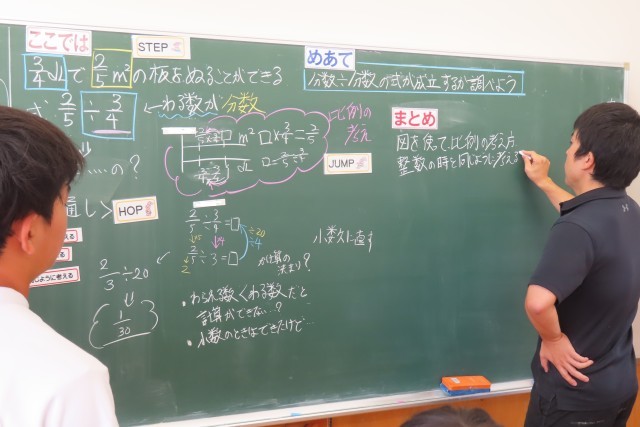 ここでは
STEP
めあて
3/4 dLで 2/5 m²の板をぬることができる
分数÷分数の式が成立するか調べよう
式 2/5 ÷ 3/4 ←わる数が分数
比例の考え
□ m² □×3/4=2/5
1 dL □=2/5÷3/4
JUMP
まとめ
図を使って、比例の考え方
整数の時と同じように考える
の?
通し>
HOP
2/5÷3/4=□
÷20
÷4
2/5÷3=□
小数に直す
かけ算の決まり?
じように考える
2/3÷20
1/30
・わられる数<わる数だと
計算ができない…?
・小数のときはできたけど…